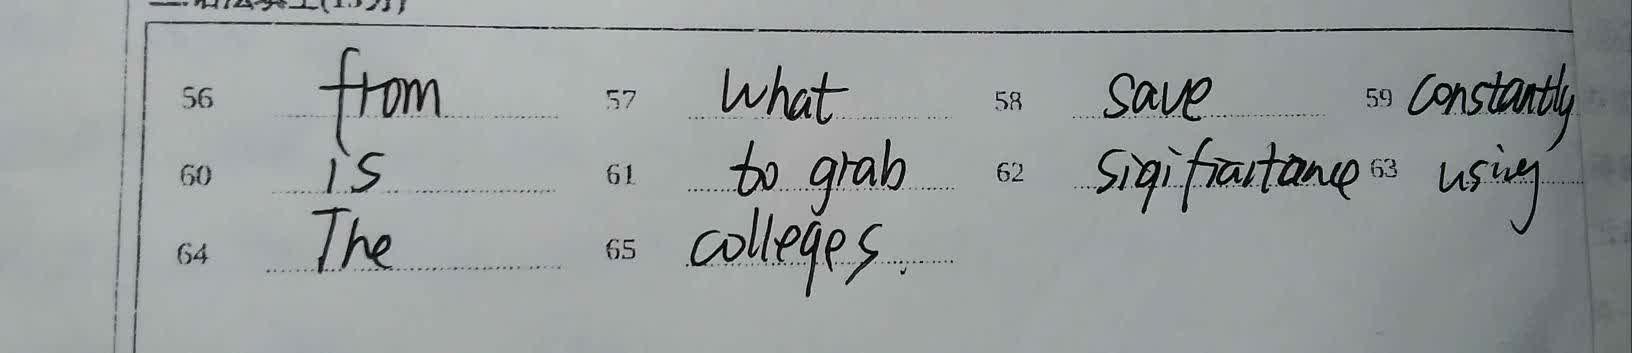 二.语法填空(15分)
56 from 57 what 58 save 59 constantly
60 is 61 to grab 62 siqifraitance 63 using
64 The 65 colleges.